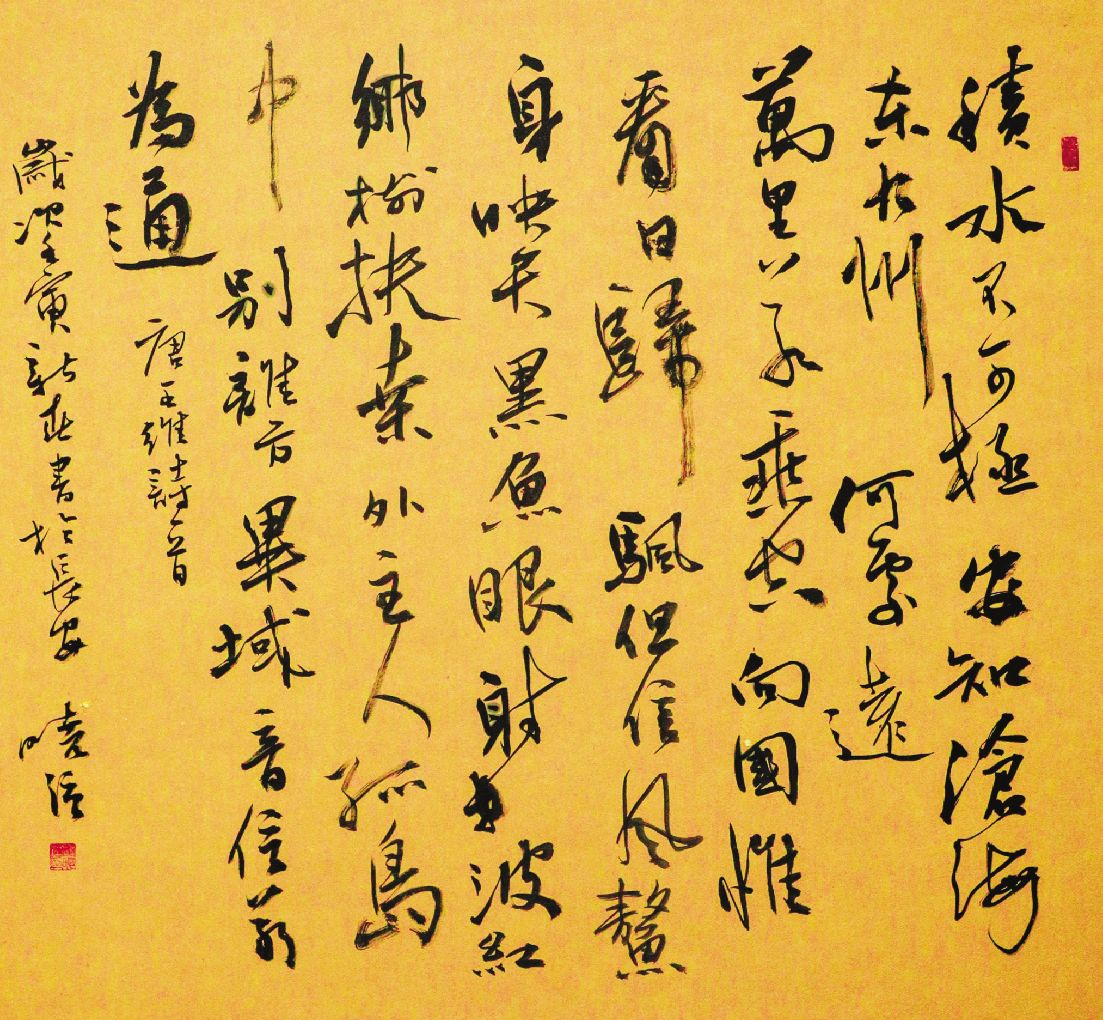 積水不可極安知滄海
東九州何處遠
萬里若乘空向國惟
看日歸颿但信風鰲
身映天黑魚眼射波紅
鄉樹扶桑外主人孤島
中別離方異域音信若
為通 唐王維詩一首
歲次壬寅新春書於長安 曉